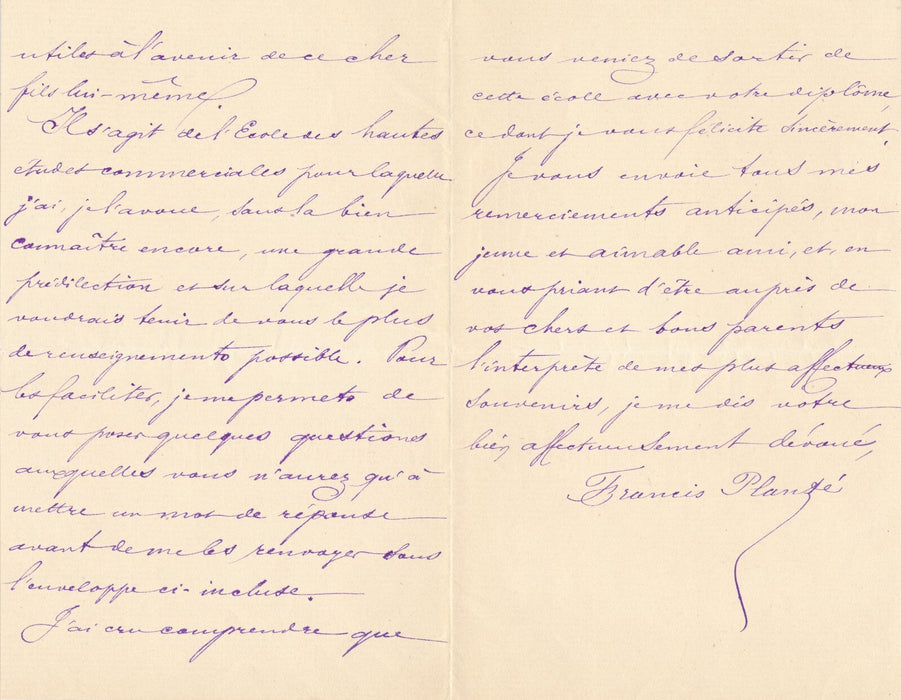 utiles à l'avenir de ce cher
fils lui-même.
Il s'agit de l'Ecole des hautes
etudes commerciales pour laquelle
j'ai, je l'avoue, sans la bien
connaître encore, une grande
prédilection et sur laquelle je
voudrais tenir de vous le plus
de renseignements possible. Pour
les faciliter, je me permets de
vous poser quelques questions
auxquelles vous n'aurez qu'à
mettre un mot de réponse
avant de me les renvoyer sous
l'enveloppe ci-incluse.
J'ai cru comprendre que
vous veniez de sortir de
cette école avec votre diplôme
ce dont je vous félicite sincèrement
Je vous envoie tous mes
remerciements anticipés, mon
jeune et aimable ami, et, en
vous priant d'être auprès de
vos chers et bons parents
l'interprète de mes plus affectueux
souvenirs, je me dis votre
bien affectueusement dévoué,
Francis Planté